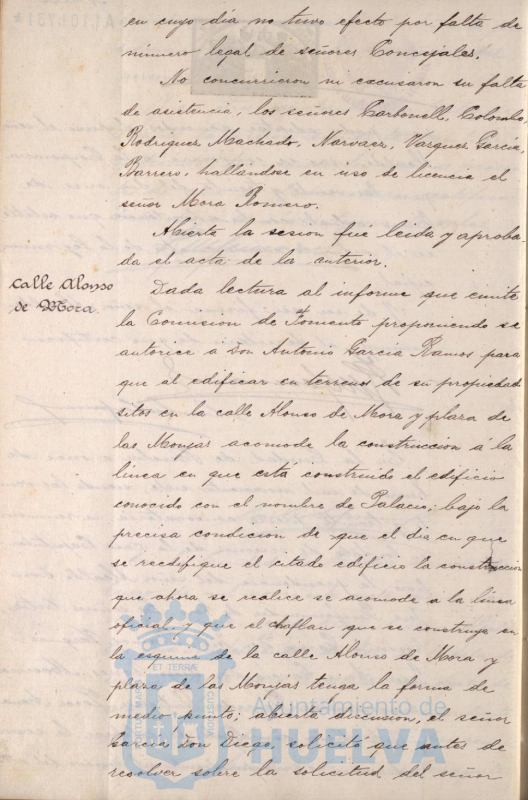 en cuyo día no tuvo efecto por falta de
número legal de señores Concejales.
No concurrieron ni excusaron su falta
de asistencia, los señores Carbonell, Colombo,
Rodriguez Machado, Narvaez, Vazquez Garcia,
Barrero, hallandose en uso de licencia el
señor Mora Romero.
Abierta la sesion fué leida y aproba-
da el acta de la anterior.
Calle Alonso
de Mora
Dada lectura al informe que emite
la Comision de Fomento proponiendo se
autorice á Don Antonio Garcia Ramos para
que al edificar en terrenos de su propiedad
sitos en la calle Alonso de Mora y plaza de
las Monjas acomode la construccion á la
línea en que está construido el edificio
conocido con el nombre de Palacio; bajo la
precisa condicion de que el dia en que
se reedifique el citado edificio la construccion
que ahora se realice se acomode a la línea
oficial, y que el chaflan que se construya en
la esquina de la calle Alonso de Mora y
plaza de las Monjas tenga la forma de
medio punto; abierta discusion, el señor
Garcia Don Diego, solicitó que antes de
resolver sobre la solicitud del señor
ET TERRA
Ayuntamiento de
HUELVA